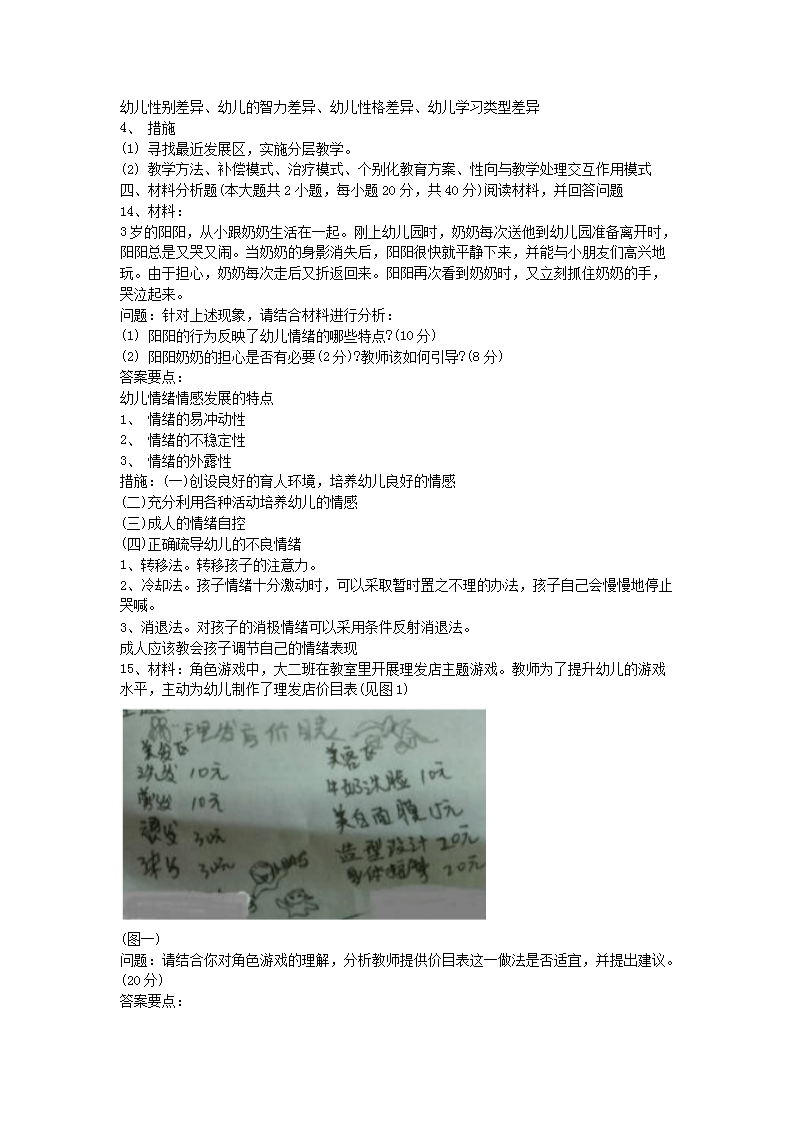 幼儿性别差异、幼儿的智力差异、幼儿性格差异、幼儿学习类型差异
4、 措施
(1) 寻找最近发展区，实施分层教学。
(2) 教学方法、补偿模式、治疗模式、个别化教育方案、性向与教学处理交互作用模式
四、材料分析题(本大题共2小题，每小题20分，共40分)阅读材料，并回答问题
14、材料：
3岁的阳阳，从小跟奶奶生活在一起。刚上幼儿园时，奶奶每次送他到幼儿园准备离开时，
阳阳总是又哭又闹。当奶奶的身影消失后，阳阳很快就平静下来，并能与小朋友们高兴地
玩。由于担心，奶奶每次走后又折返回来。阳阳再次看到奶奶时，又立刻抓住奶奶的手，
哭泣起来。
问题：针对上述现象，请结合材料进行分析：
(1) 阳阳的行为反映了幼儿情绪的哪些特点?(10分)
(2) 阳阳奶奶的担心是否有必要(2分)?教师该如何引导?(8分)
答案要点：
幼儿情绪情感发展的特点
1、 情绪的易冲动性
2、 情绪的不稳定性
3、 情绪的外露性
措施：(一)创设良好的育人环境，培养幼儿良好的情感
(二)充分利用各种活动培养幼儿的情感
(三)成人的情绪自控
(四)正确疏导幼儿的不良情绪
1、转移法。转移孩子的注意力。
2、冷却法。孩子情绪十分激动时，可以采取暂时置之不理的办法，孩子自己会慢慢地停止
哭喊。
3、消退法。对孩子的消极情绪可以采用条件反射消退法。
成人应该教会孩子调节自己的情绪表现
15、材料：角色游戏中，大二班在教室里开展理发店主题游戏。教师为了提升幼儿的游戏
水平，主动为幼儿制作了理发店价目表(见图1)
理发店价目表
美发区
洗发 10元
剪发 10元
烫发 30元
30元
美容区
牛奶洗脸 10元
美白面膜 15元
造型设计 20元
身体 20元
(图一)
问题：请结合你对角色游戏的理解，分析教师提供价目表这一做法是否适宜，并提出建议。
(20分)
答案要点：